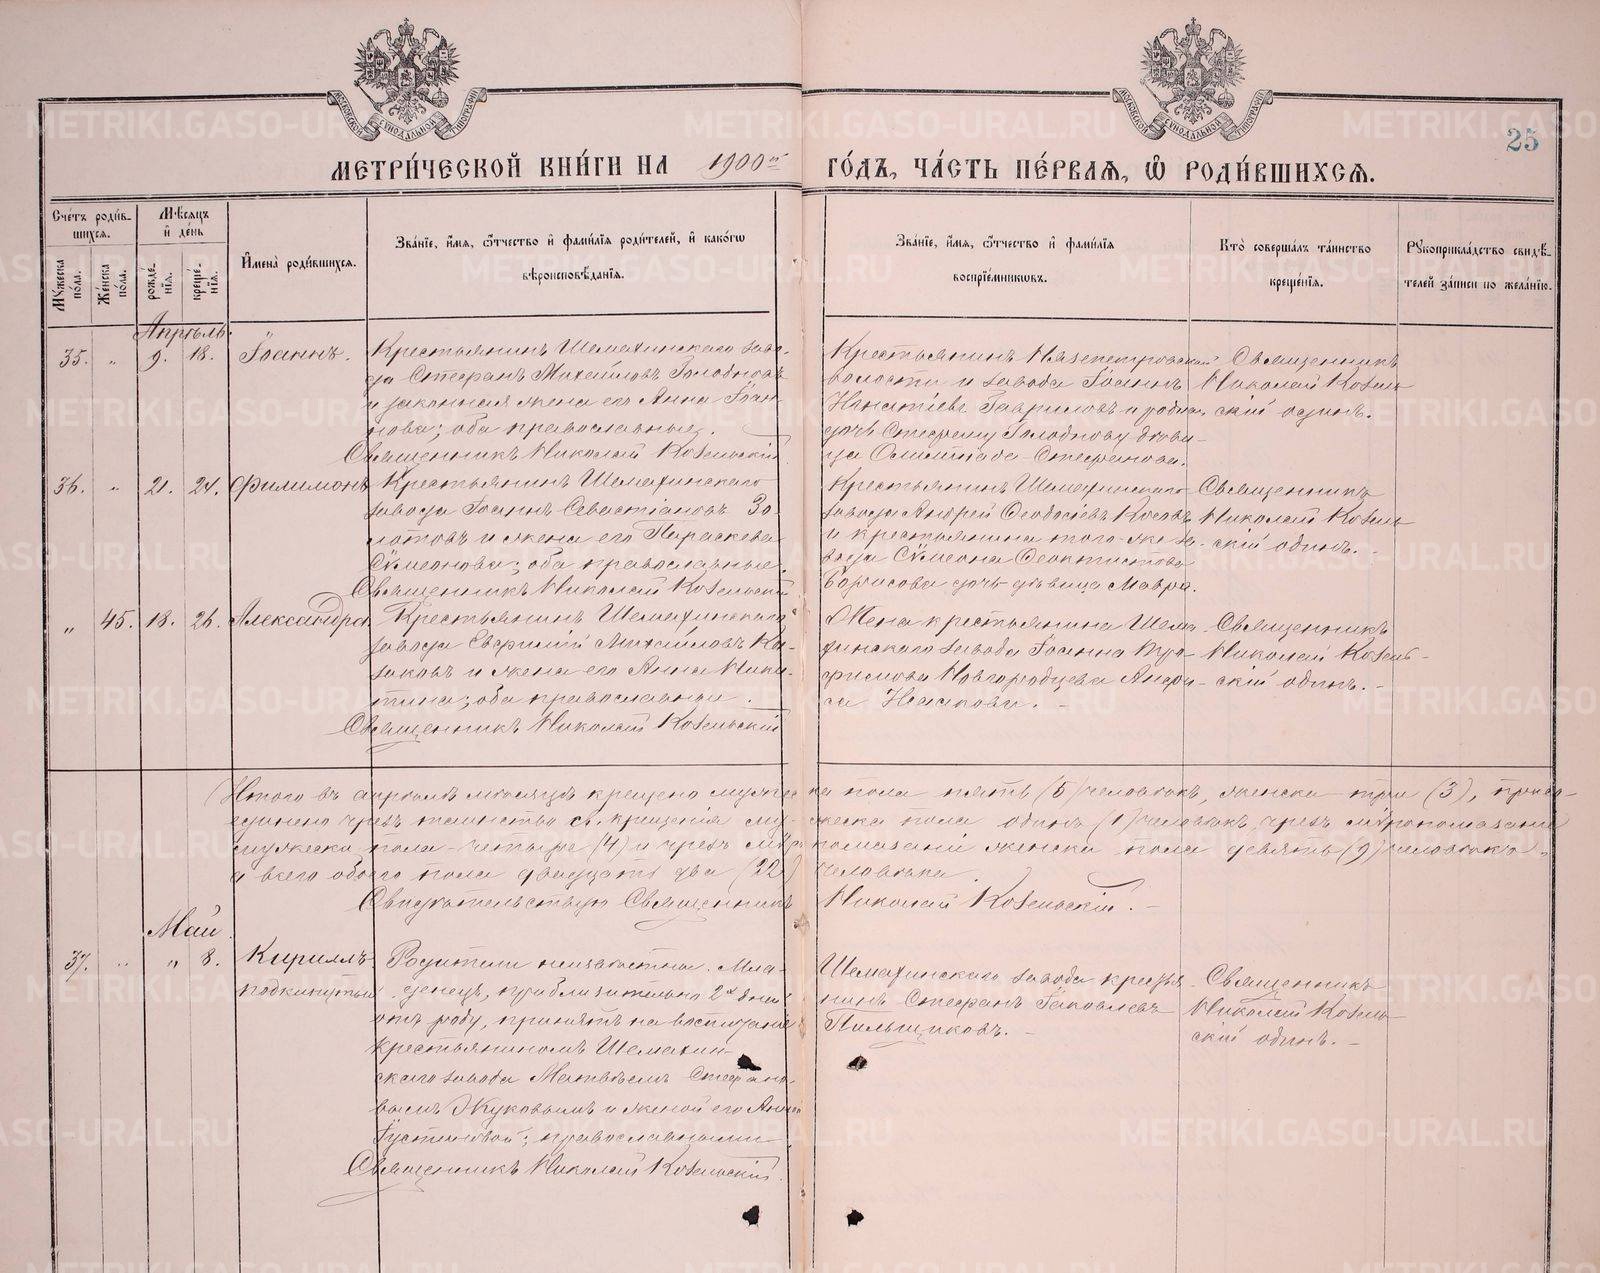 МЕТРИ́ЧЕСКОЙ КНИ́ГИ НА 1900й ГО́ДЪ, ЧА́СТЬ ПЕ́РВАЯ, Ѡ РОДИ́ВШИХСЯ.
25
Сче́тъ роди́вшихся.
Му́жеска по́ла.
Же́нска по́ла.
Мѣ́сяцъ и де́нь
рожде́нїя.
креще́нїя.
Имена̀ роди́вшихся.
Зва́нїе, и́мя, ѻ́тчество и фами́лїя роди́телей, и како́гѡ
вѣроисповѣ́данїя.
Зва́нїе, и́мя, ѻ́тчество и фами́лїя
воспрїе́мниковъ.
Кто̀ соверша́лъ та́инство
креще́нїя.
Рꙋкоприкла́дство свидѣ́-
телей за́писи по жела́нїю.
Апрѣль.
35. „ 9. 18. Іоаннъ.
Крестьянинъ Шемахинскаго заво-
да Стефанъ Михайловъ Голодновъ
и законная жена его Анна Іоан-
нова; оба православные.
Священникъ Николай Козельскій
Крестьянинъ Нязепетровской
волости и завода Іоаннъ
Игнатіевъ Гавриловъ и родная
дочь Стефану Голоднову дѣви-
ца Олимпіада Стефанова.
Священникъ
Николай Козель-
скій одинъ.
36. „ 21. 24. Филимонъ
Крестьянинъ Шемахинскаго
завода Іоаннъ Севастіановъ Зо-
лотовъ и жена его Параскева
Сѵмеонова; оба православные.
Священникъ Николай Козельскій
Крестьянинъ Шемахинскаго
завода Андрей Ѳеодосіевъ Косовъ
и крестьянина того-же за-
вода Сѵмеона Ѳеоктистова
Борисова дочь дѣвица Мавра.
Священникъ
Николай Козель-
скій одинъ.
„ 45. 18. 26. Александра
Крестьянинъ Шемахинскаго
завода Евфимій Михайловъ Ка-
заковъ и жена его Анна Ники-
тина; оба православные.
Священникъ Николай Козельскій
Жена крестьянина Шема-
хинскаго завода Іоанна Тро-
фимова Новгородцева Анфи-
са Исаакова.
Священникъ
Николай Козель-
скій одинъ.
Итого въ апрѣлѣ мѣсяцѣ крещено мужеска пола пять (5) человѣкъ, женска три (3), присо-
единено чрезъ таинство св. крещенія мужеска пола одинъ (1) человѣкъ, чрезъ мѵропомазаніе
мужеска пола четыре (4) и чрезъ мѵропомазаніе женска пола девять (9) человѣкъ,
а всего обоего пола двадцать два (22) человѣка.
Свидѣтельствую Священникъ Николай Козельскій.
Май.
37. „ „ 8. Кириллъ
подкинутый
Родители неизвѣстны. Мла-
денецъ, приблизительно 2х дней
отъ роду, принятъ на воспитаніе
крестьяниномъ Шемахин-
скаго завода Матвѣемъ Стефано-
вымъ Жуковымъ и женой его Анной
Іустиновой; православными
Священникъ Николай Козельскій.
Шемахинскаго завода крестья-
нинъ Стефанъ Іаковлевъ
Пильщиковъ.
Священникъ
Николай Козель-
скій одинъ.